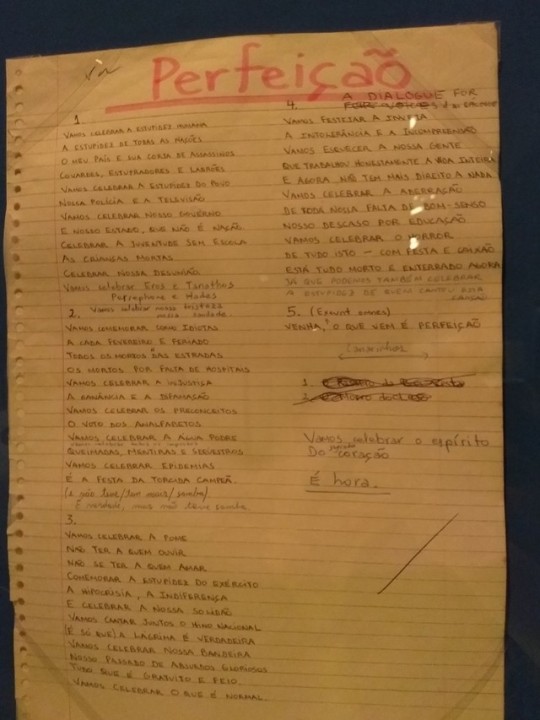 Perfeição
1.
VAMOS CELEBRAR A ESTUPIDEZ HUMANA
A ESTUPIDEZ DE TODAS AS NAÇÕES
O MEU PAÍS E SUA CORJA DE ASSASSINOS
COVARDES, ESTUPRADORES E LADRÕES
VAMOS CELEBRAR A ESTUPIDEZ DO POVO
NOSSA POLÍCIA E A TELEVISÃO
VAMOS CELEBRAR NOSSO GOVERNO
E NOSSO ESTADO, QUE NÃO É NAÇÃO
CELEBRAR A JUVENTUDE SEM ESCOLA
AS CRIANÇAS MORTAS
CELEBRAR NOSSA DESUNIÃO
Vamos celebrar Eros e Tanathos
Persephone e Hades
Vamos celebrar nossa tristeza
nossa vaidade
2.
VAMOS COMEMORAR COMO IDIOTAS
A CADA FEVEREIRO E FERIADO
TODOS OS MORTOS NAS ESTRADAS
OS MORTOS POR FALTA DE HOSPITAIS
VAMOS CELEBRAR A INJUSTIÇA
A GANÂNCIA E A DIFAMAÇÃO
VAMOS CELEBRAR OS PRECONCEITOS
O VOTO DOS ANALFABETOS
VAMOS CELEBRAR A ÁGUA PODRE
QUEIMADAS, MENTIRAS E SEQUESTROS
VAMOS CELEBRAR EPIDEMIAS
É A FESTA DA TORCIDA CAMPEÃ.
3.
VAMOS CELEBRAR A FOME
NÃO TER A QUEM OUVIR
NÃO SE TER A QUEM AMAR
COMEMORAR A ESTUPIDEZ DO EXÉRCITO
A HIPOCRISIA, A INDIFERENÇA
E CELEBRAR A NOSSA SOLIDÃO
VAMOS CANTAR JUNTOS O HINO NACIONAL
(E SÓ QUE) A LÁGRIMA É VERDADEIRA
VAMOS CELEBRAR NOSSA BANDEIRA
NOSSO PASSADO DE ABSURDOS GLORIOSOS
TUDO QUE É GRATUITO E FEIO
VAMOS CELEBRAR O QUE É NORMAL.
4.
A DIALOGUE FOR
VAMOS FESTEJAR A INVEJA
A INTOLERÂNCIA E A INCOMPREENSÃO
VAMOS ESQUECER A NOSSA GENTE
QUE TRABALHOU HONESTAMENTE A VIDA INTEIRA
E AGORA NÃO TEM MAIS DIREITO A NADA
VAMOS CELEBRAR A ABERRAÇÃO
DE TODA NOSSA FALTA DE BOM-SENSO
NOSSO DESCASO POR EDUCAÇÃO
VAMOS CELEBRAR O HORROR
DE TUDO ISTO - COM FESTA E CAIXÃO
ESTÁ TUDO MORTO E ENTERRADO AGORA
JÁ QUE PODEMOS TAMBÉM CELEBRAR
A ESTUPIDEZ DE QUEM CANTOU ESTA
CANÇÃO
5. (Exeunt omnes)
VENHA, O QUE VEM É PERFEIÇÃO
1.
2.
Vamos celebrar o espírito
Do coração
É hora.